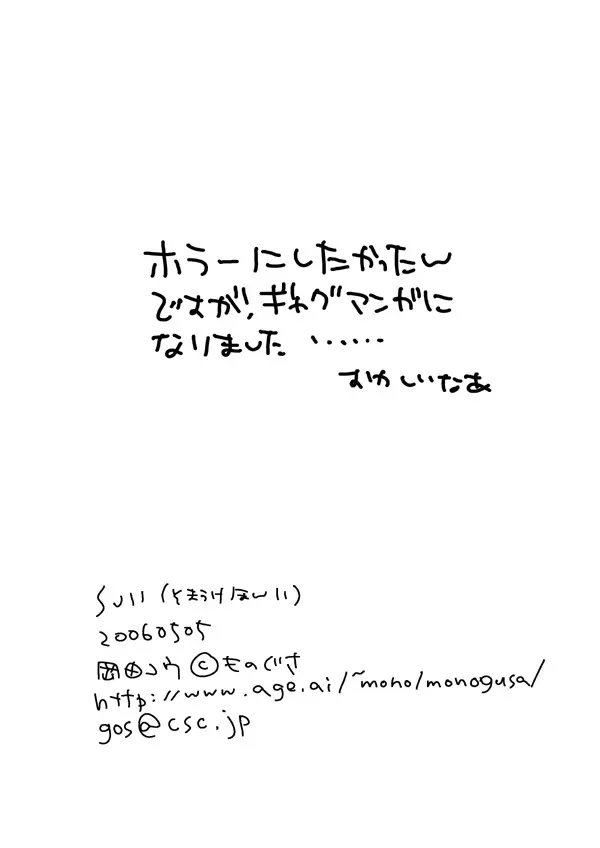 ホラーにしたかったん
ですが、ギャグマンガに
なりました ‥‥‥
おかしいなあ
20060505
岡田コウ ©ものぐさ
http://www.age.ai/~mono/monogusa/
gos@csc.jp